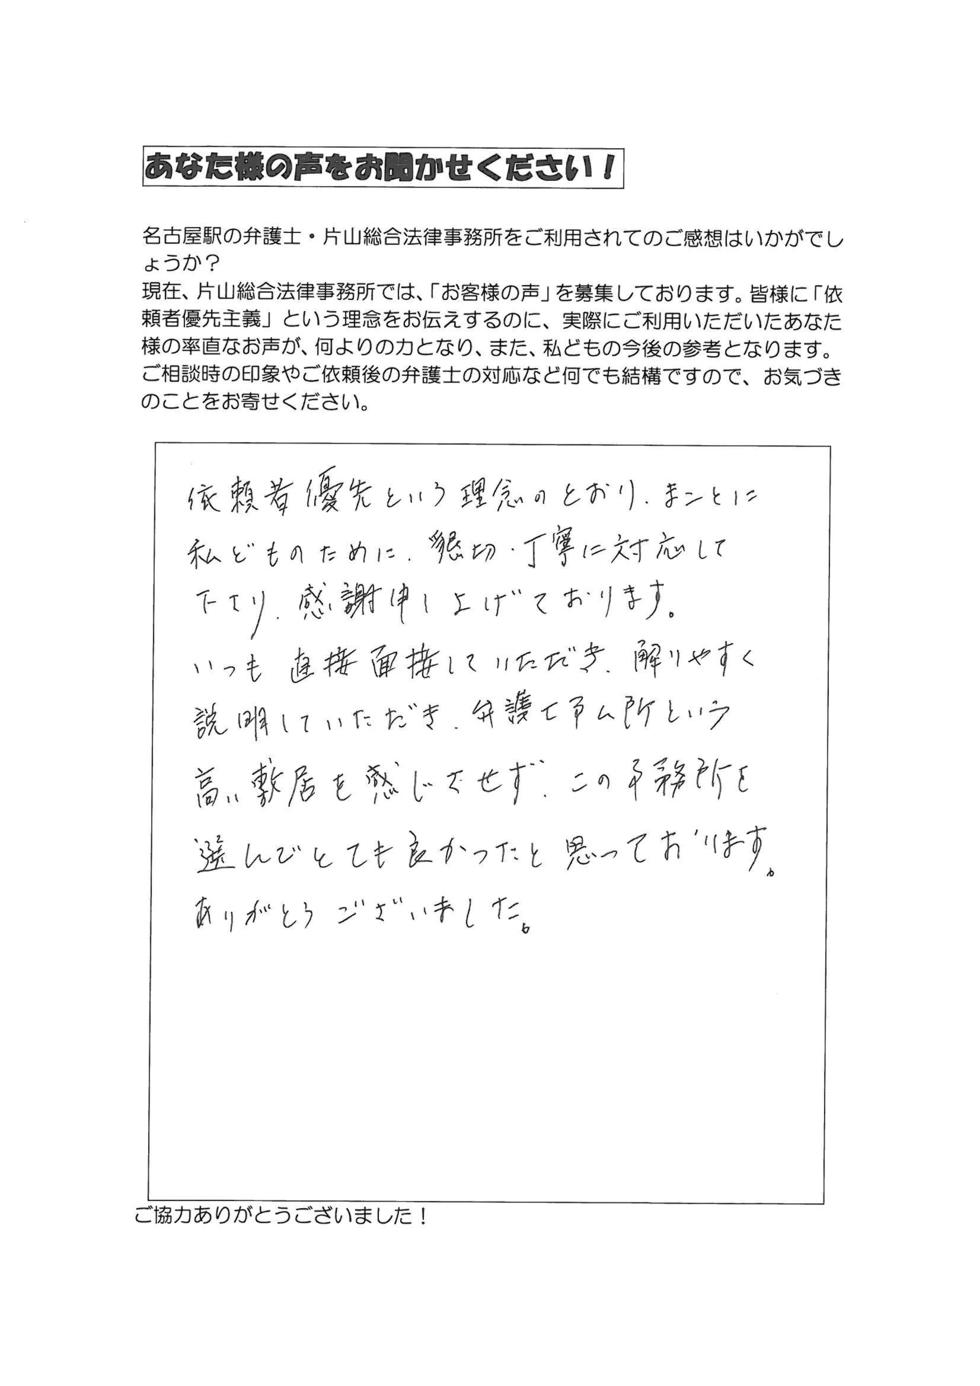 あなた様の声をお聞かせください！
名古屋駅の弁護士・片山総合法律事務所をご利用されてのご感想はいかがでし
ょうか？
現在、片山総合法律事務所では、「お客様の声」を募集しております。皆様に「依
頼者優先主義」という理念をお伝えするのに、実際にご利用いただいたあなた
様の率直なお声が、何よりの力となり、また、私どもの今後の参考となります。
ご相談時の印象やご依頼後の弁護士の対応など何でも結構ですので、お気づき
のことをお寄せください。
依頼者優先という理念のとおり、まことに
私どものために、懇切・丁寧に対応して
下さり、感謝申し上げております。
いつも直接面接していただき、解りやすく
説明していただき、弁護士事ム所という
高い敷居を感じさせず、この事務所を
選んでとても良かったと思っております。
ありがとうございました。
ご協力ありがとうございました！